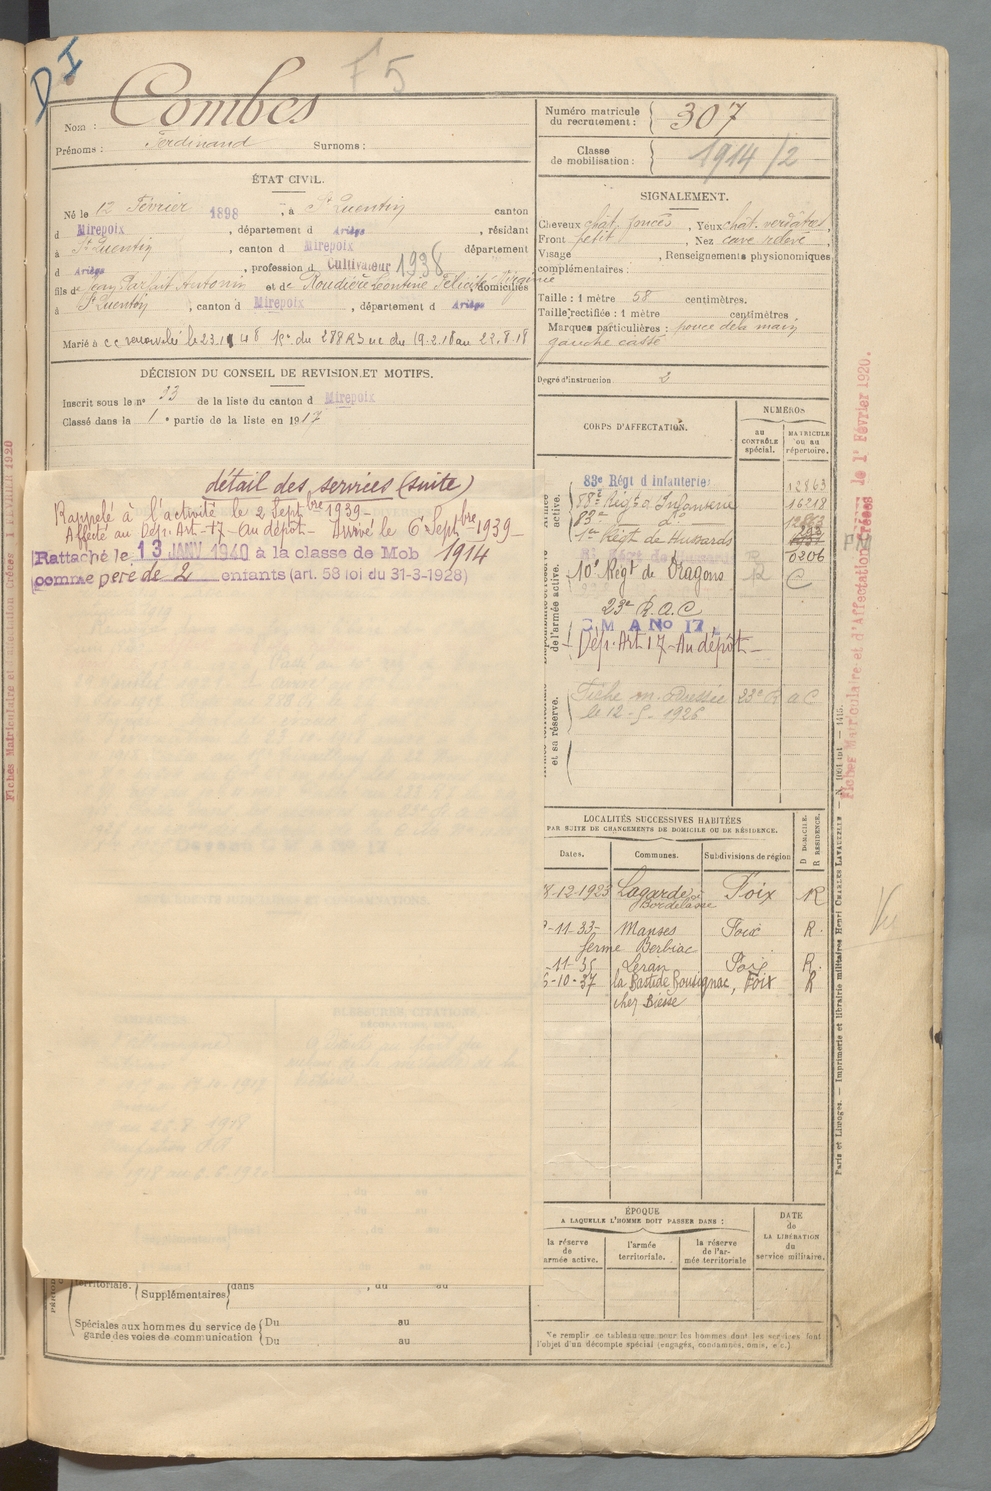 DI
F5
Nom : Combes
Prénoms : Ferdinand Surnoms :
Numéro matricule du recrutement : 307
Classe de mobilisation : 1914/2
ÉTAT CIVIL.
Né le 12 Février 1898, à St Quentin canton
d Mirepoix, département d Ariège, résidant
à St Quentin, canton d Mirepoix département
d Ariège, profession d Cultivateur 1938
fils de Jean Parfait Antonin et de Roudière Léontine Félicité Virginie domiciliés
à St Quentin, canton d Mirepoix, département d Ariège
Marié à cc renouvelée le 23.1.48 du 288 RI du 19.2.18 au 22.8.18
DÉCISION DU CONSEIL DE REVISION ET MOTIFS.
Inscrit sous le n° 33 de la liste du canton d Mirepoix
Classé dans la 1e partie de la liste en 1917
SIGNALEMENT.
Cheveux chât. foncés, Yeux chât. verdâtres,
Front petit, Nez cave relevé,
Visage , Renseignements physionomiques
complémentaires :
Taille : 1 mètre 58 centimètres.
Taille rectifiée : 1 mètre centimètres
Marques particulières : pouce de la main
gauche cassé
Degré d'instruction 2
détail des services (suite)
Rappelé à l'activité le 2 Septbre 1939-
Affecté au Dép. Art-17-Au dépôt- Arrivé le 6 Septbre 1939-
Rattaché le 13 JANV 1940 à la classe de Mob 1914
comme père de 2 enfants (art. 58 loi du 31-3-1928)
CORPS D'AFFECTATION.
NUMÉROS
au CONTRÔLE spécial.
MATRICULE ou au répertoire.
active.
83e Régt d'Infanterie 12863
58e Régt d'Infanterie 16248
83e d° 12863
1er Régt de Hussards
0306
de l'armée active.
10e Régt de Dragons R C
23e R.A.C
C M A No 17
Dép. Art 17-Au dépôt-
et sa réserve.
Fiche m. 23e R a C
le 12-5-1926
LOCALITÉS SUCCESSIVES HABITÉES
PAR SUITE DE CHANGEMENTS DE DOMICILE OU DE RÉSIDENCE.
Dates. Communes. Subdivisions de région D DOMICILE. R RÉSIDENCE.
8-12-1923 Lagarde Foix R
Bordelasse
-11-33- Manses Foix R.
ferme Berbiac
-11-35 Léran Foix R.
-10-37 la Bastide Bousignac, Foix R
chez Biesse
ÉPOQUE
A LAQUELLE L'HOMME DOIT PASSER DANS :
DATE de LA LIBÉRATION du service militaire.
la réserve de armée active.
l'armée territoriale.
la réserve de l'armée territoriale
Ne remplir ce tableau que pour les hommes dont les services font
l'objet d'un décompte spécial (engagés, condamnés, omis, etc.)
territoriale. Supplémentaires dans , du au
Spéciales aux hommes du service de garde des voies de communication
Du au
Du au
Paris et Limoges. — Imprimerie et librairie militaires Henri CHARLES-LAVAUZELLE
Fiches Matriculaire et d'Affectation Créées le 1er Février 1920.
Vu